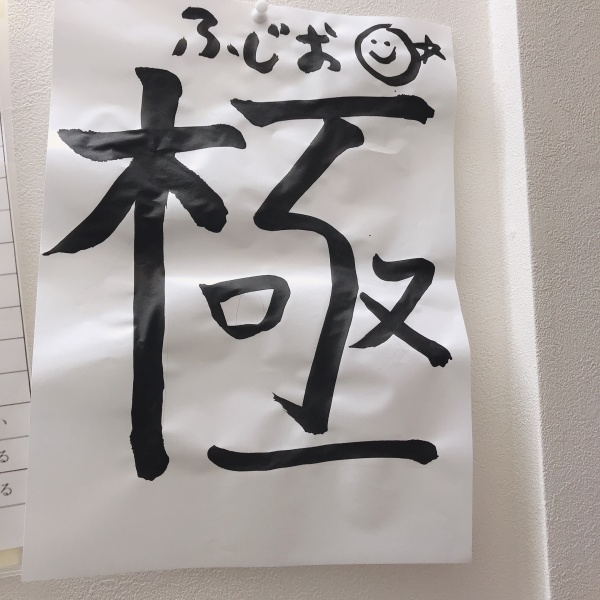 ふじお
極
、
る
る